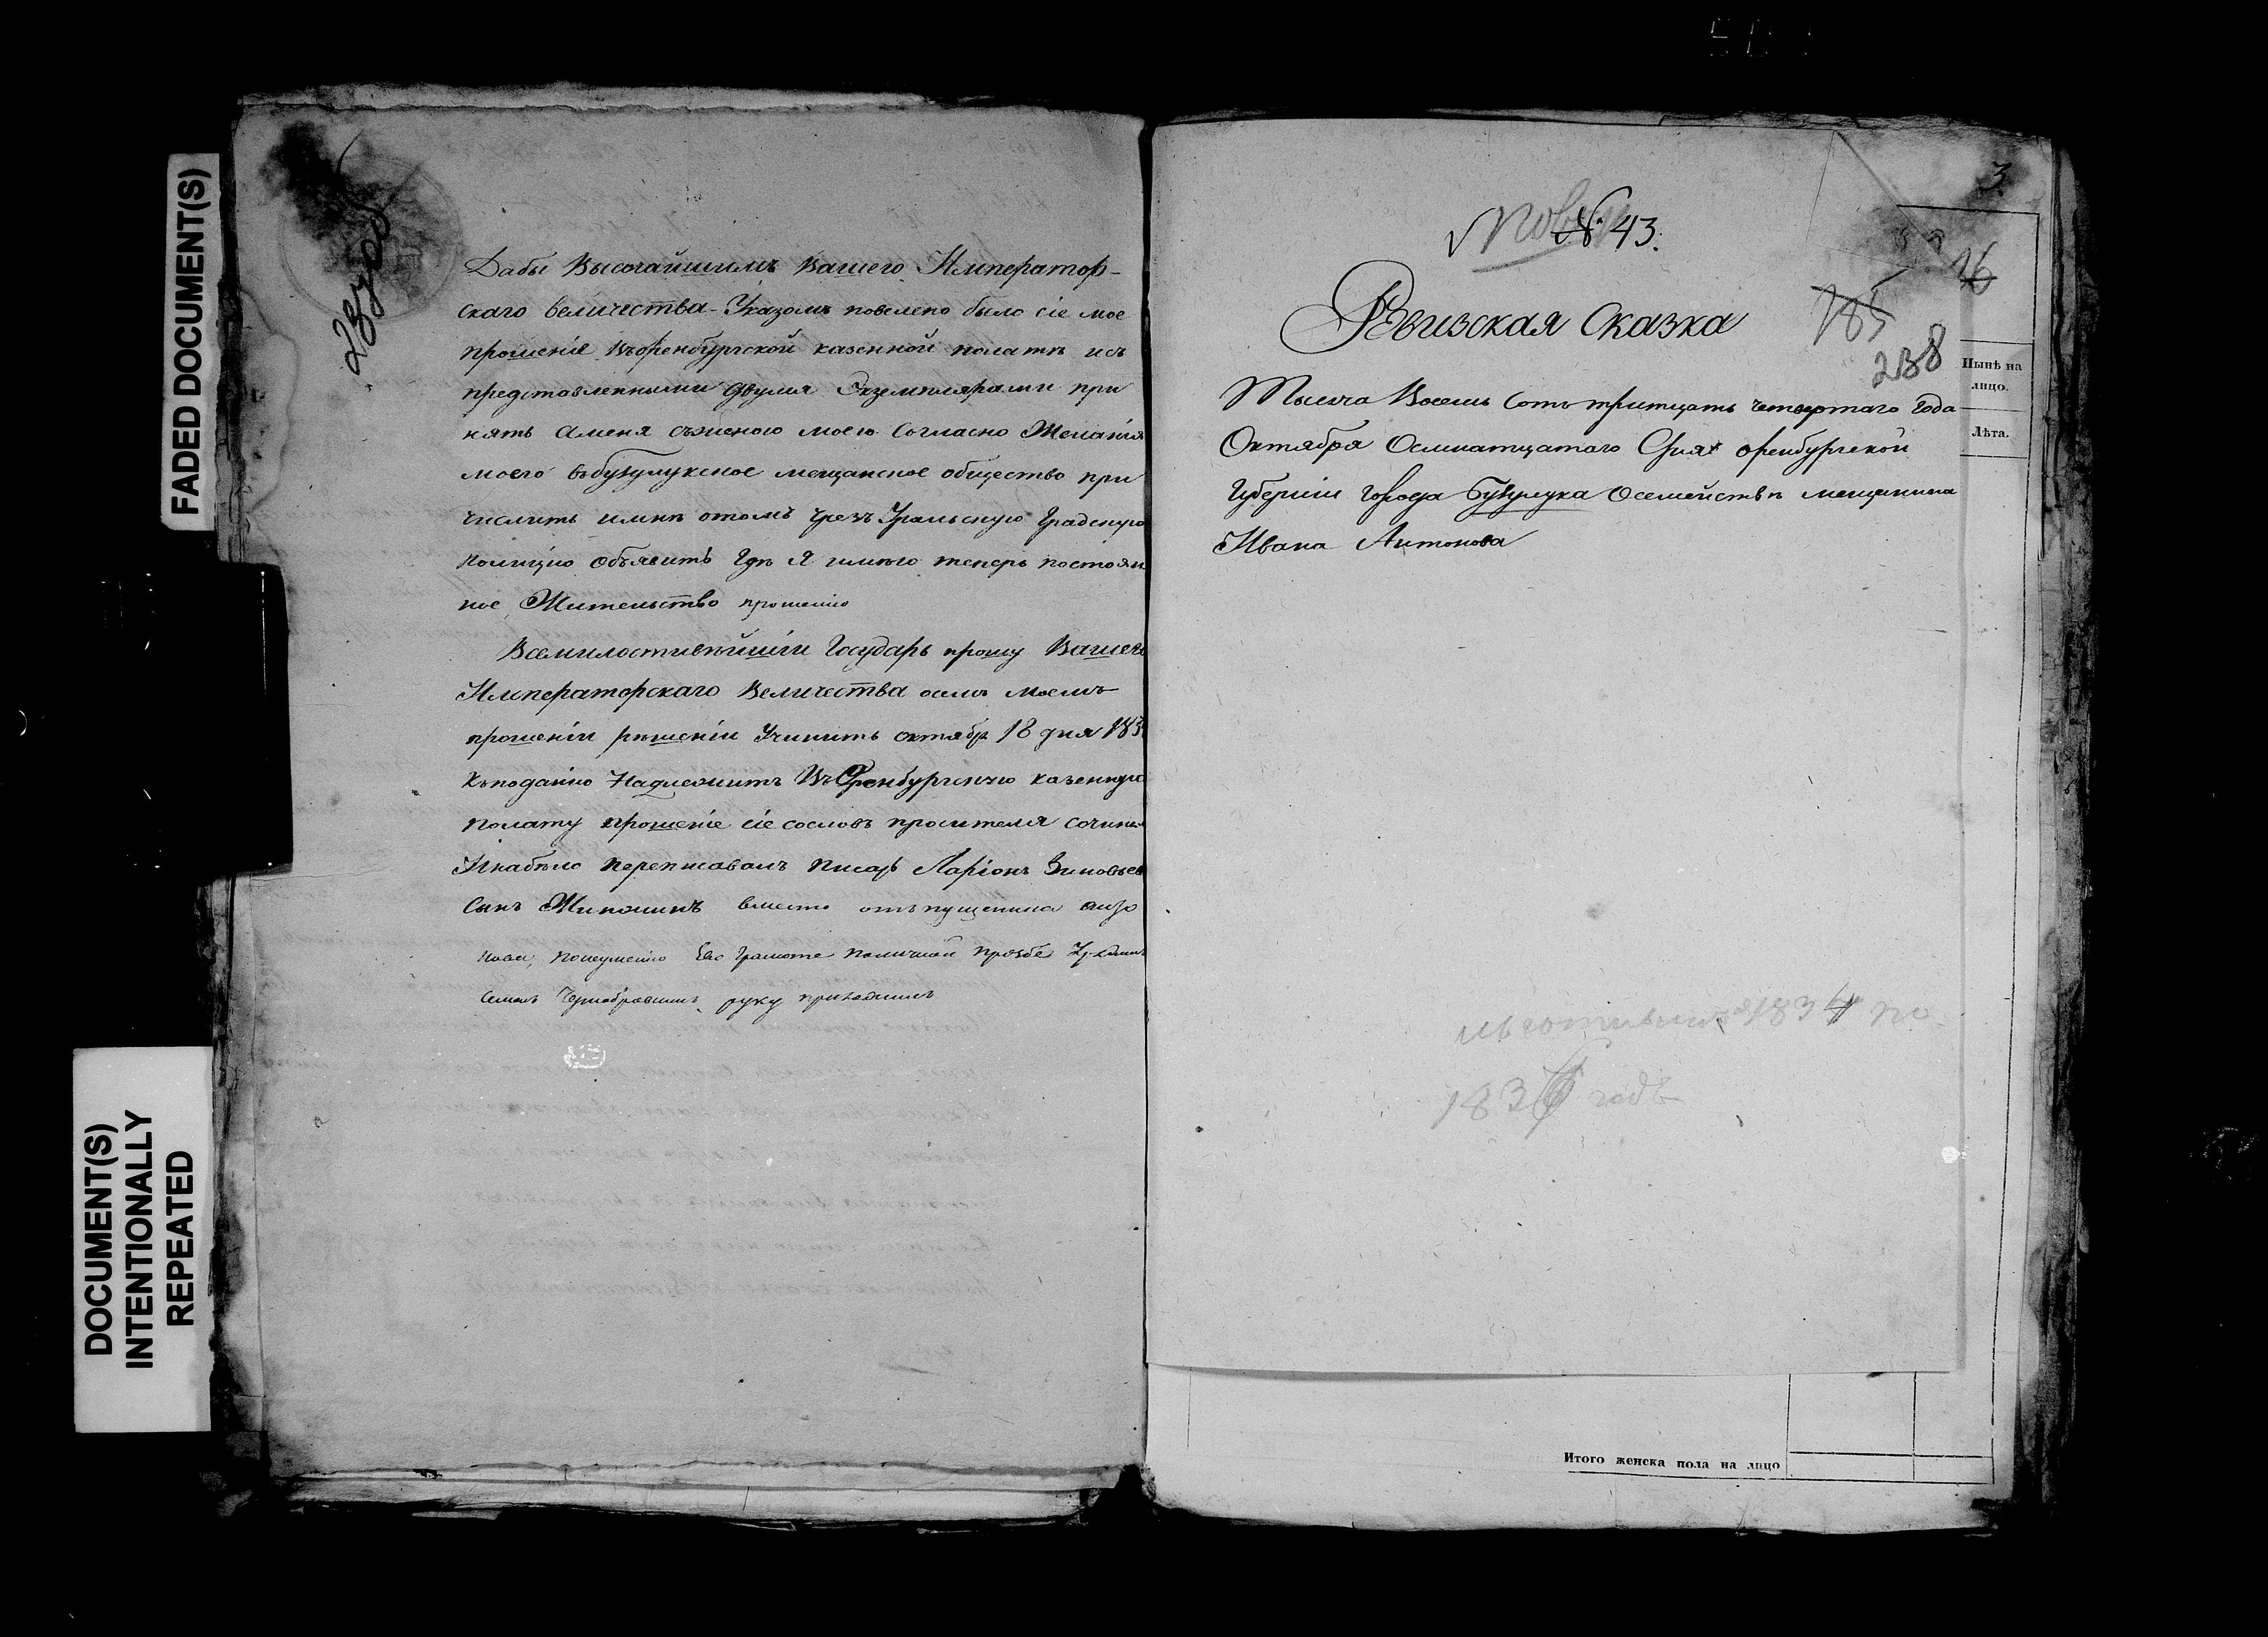 FADED DOCUMENT(S)
DOCUMENT(S)
INTENTIONALLY
REPEATED
Дабы Высочайшимъ Вашего Император-
скаго величества Указомъ повелено было сіе мое
прошеніе въ оренбургской казенной полатѣ исъ
представленными двумя Экземплярами при
нять Аменя съженою моею Согласно Желанія
моего въбузулукское мещанское общество при
числить имнѣ отомъ чрезъ Уральскую Градскую
полицію объявить Гдѣ Я имѣю теперь постоян
ное Жительство прошенію
Всемилостивѣйшій Государь прошу Вашего
Императорскаго Величества осемъ моемъ
прошеніи рѣшеніи Учинить октябр 18 дня 183
Къподанію Надлежитъ Въ Оренбургскую казенную
полату прошеніе сіе сословъ просителя сочинял
Инабѣло переписавалъ писарь Ларіонъ Зиновьев
Сынъ вместо отъпущенина
Грамоте поличной прозбе
Семенъ руку приложилъ
3
№ 43.
16
785
238
Ревизская Сказка
Тысяча Восемь Сотъ тритцать четвертаго Года
Октября Осмнатцатаго Дня оренбургской
Губерніи города Бузулука Осемействѣ мещанина
Ивана Антонова
Нынѣ на
лицо.
Лѣта.
1834 по
1836 годъ
Итого женска пола на лицо